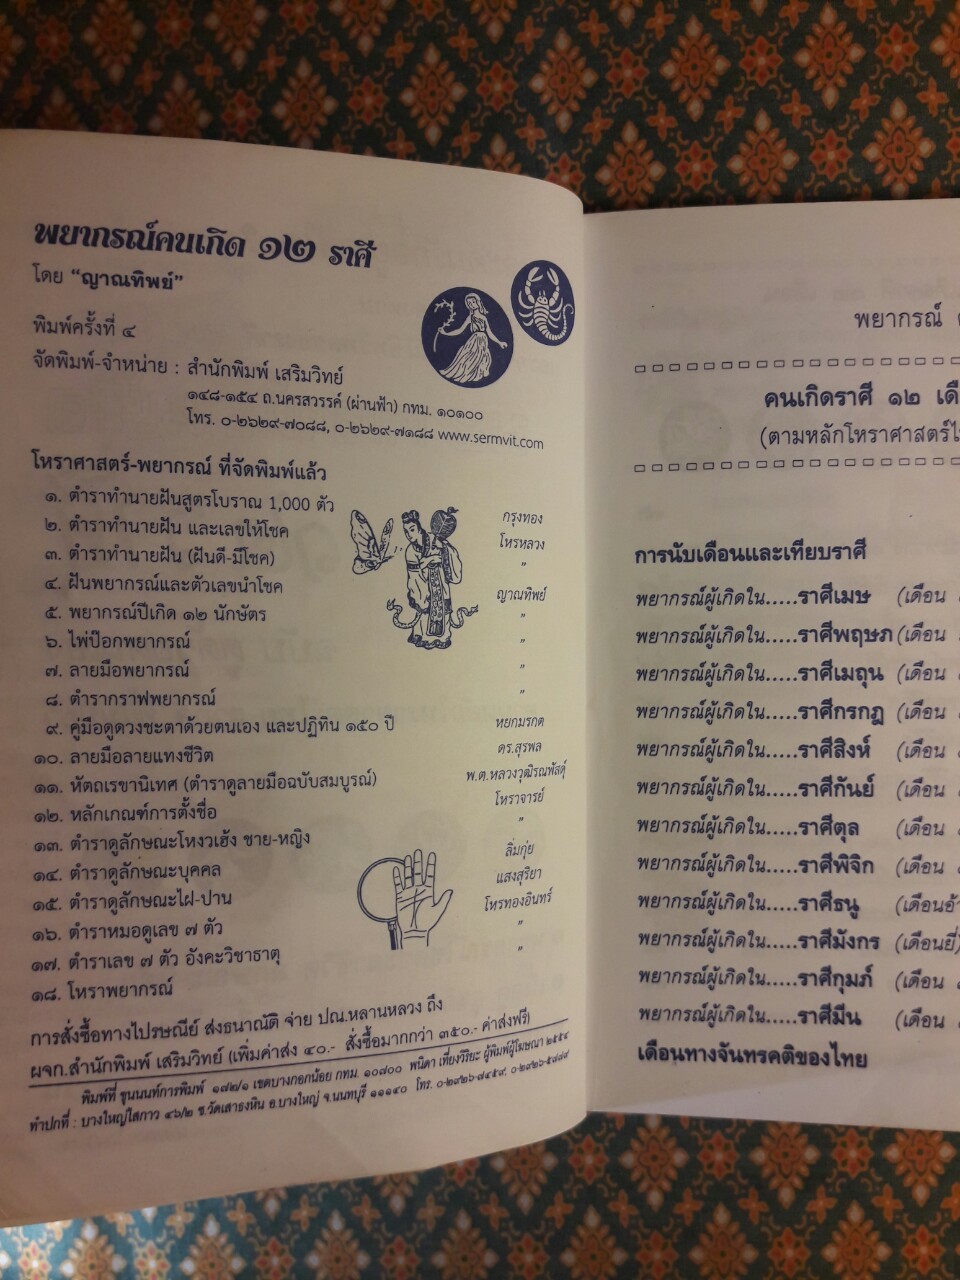 พยากรณ์คนเกิด ๑๒ ราศี
โดย "ญาณทิพย์"
พิมพ์ครั้งที่ ๔
จัดพิมพ์-จำหน่าย : สำนักพิมพ์ เสริมวิทย์
๑๔๘-๑๕๔ ถ.นครสวรรค์ (ผ่านฟ้า) กทม. ๑๐๑๐๐
โทร. ๐-๒๖๒๙-๗๐๘๘, ๐-๒๖๒๙-๗๑๘๘ www.sermvit.com
โหราศาสตร์-พยากรณ์ ที่จัดพิมพ์แล้ว
๑. ตำราทำนายฝันสูตรโบราณ 1,000 ตัว กรุงทอง
๒. ตำราทำนายฝัน และเลขให้โชค โหรหลวง
๓. ตำราทำนายฝัน (ฝันดี-มีโชค) "
๔. ฝันพยากรณ์และตัวเลขนำโชค ญาณทิพย์
๕. พยากรณ์ปีเกิด ๑๒ นักษัตร "
๖. ไพ่ป๊อกพยากรณ์ "
๗. ลายมือพยากรณ์ "
๘. ตำรากราฟพยากรณ์ "
๙. คู่มือดูดวงชะตาด้วยตนเอง และปฏิทิน ๑๕๐ ปี หยกมรกต
๑๐. ลายมือลายแทงชีวิต ดร.สุรพล
๑๑. หัตถเรขานิเทศ (ตำราดูลายมือฉบับสมบูรณ์) พ.ต.หลวงวุฒิรณพัสดุ์
๑๒. หลักเกณฑ์การตั้งชื่อ โหราจารย์
๑๓. ตำราดูลักษณะโหงวเฮ้ง ชาย-หญิง "
๑๔. ตำราดูลักษณะบุคคล ลิ่มกุ่ย
๑๕. ตำราดูลักษณะไฝ-ปาน แสงสุริยา
๑๖. ตำราหมอดูเลข ๗ ตัว โหรทองอินทร์
๑๗. ตำราเลข ๗ ตัว อังคะวิชาธาตุ "
๑๘. โหราพยากรณ์ "
การสั่งซื้อทางไปรษณีย์ ส่งธนาณัติ จ่าย ปณ.หลานหลวง ถึง
ผจก.สำนักพิมพ์ เสริมวิทย์ (เพิ่มค่าส่ง ๔๐.- สั่งซื้อมากกว่า ๓๕๐.- ค่าส่งฟรี)
พิมพ์ที่ ขุนนนท์การพิมพ์ ๑๗๒/๑ เขตบางกอกน้อย กทม. ๑๐๗๐๐ พนิดา เที่ยงวิริยะ ผู้พิมพ์ผู้โฆษณา ๒๕๕๔
ทำปกที่ : บางใหญ่ใสกาว ๔๖/๒ ซ.วัดเสาธงหิน อ.บางใหญ่ จ.นนทบุรี ๑๑๑๔๐ โทร. ๐-๒๙๒๖-๗๔๕๙, ๐-๒๙๒๖-๕๘๗๙
พยากรณ์
คนเกิดราศี ๑๒
(ตามหลักโหราศาสตร์
การนับเดือนและเทียบราศี
พยากรณ์ผู้เกิดใน.....ราศีเมษ (เดือน
พยากรณ์ผู้เกิดใน.....ราศีพฤษภ (เดือน
พยากรณ์ผู้เกิดใน.....ราศีเมถุน (เดือน
พยากรณ์ผู้เกิดใน.....ราศีกรกฎ (เดือน
พยากรณ์ผู้เกิดใน.....ราศีสิงห์ (เดือน
พยากรณ์ผู้เกิดใน.....ราศีกันย์ (เดือน
พยากรณ์ผู้เกิดใน.....ราศีตุล (เดือน
พยากรณ์ผู้เกิดใน.....ราศีพิจิก (เดือน
พยากรณ์ผู้เกิดใน.....ราศีธนู (เดือนอ้า
พยากรณ์ผู้เกิดใน.....ราศีมังกร (เดือนยี่)
พยากรณ์ผู้เกิดใน.....ราศีกุมภ์ (เดือน
พยากรณ์ผู้เกิดใน.....ราศีมีน (เดือน
เดือนทางจันทรคติของไทย